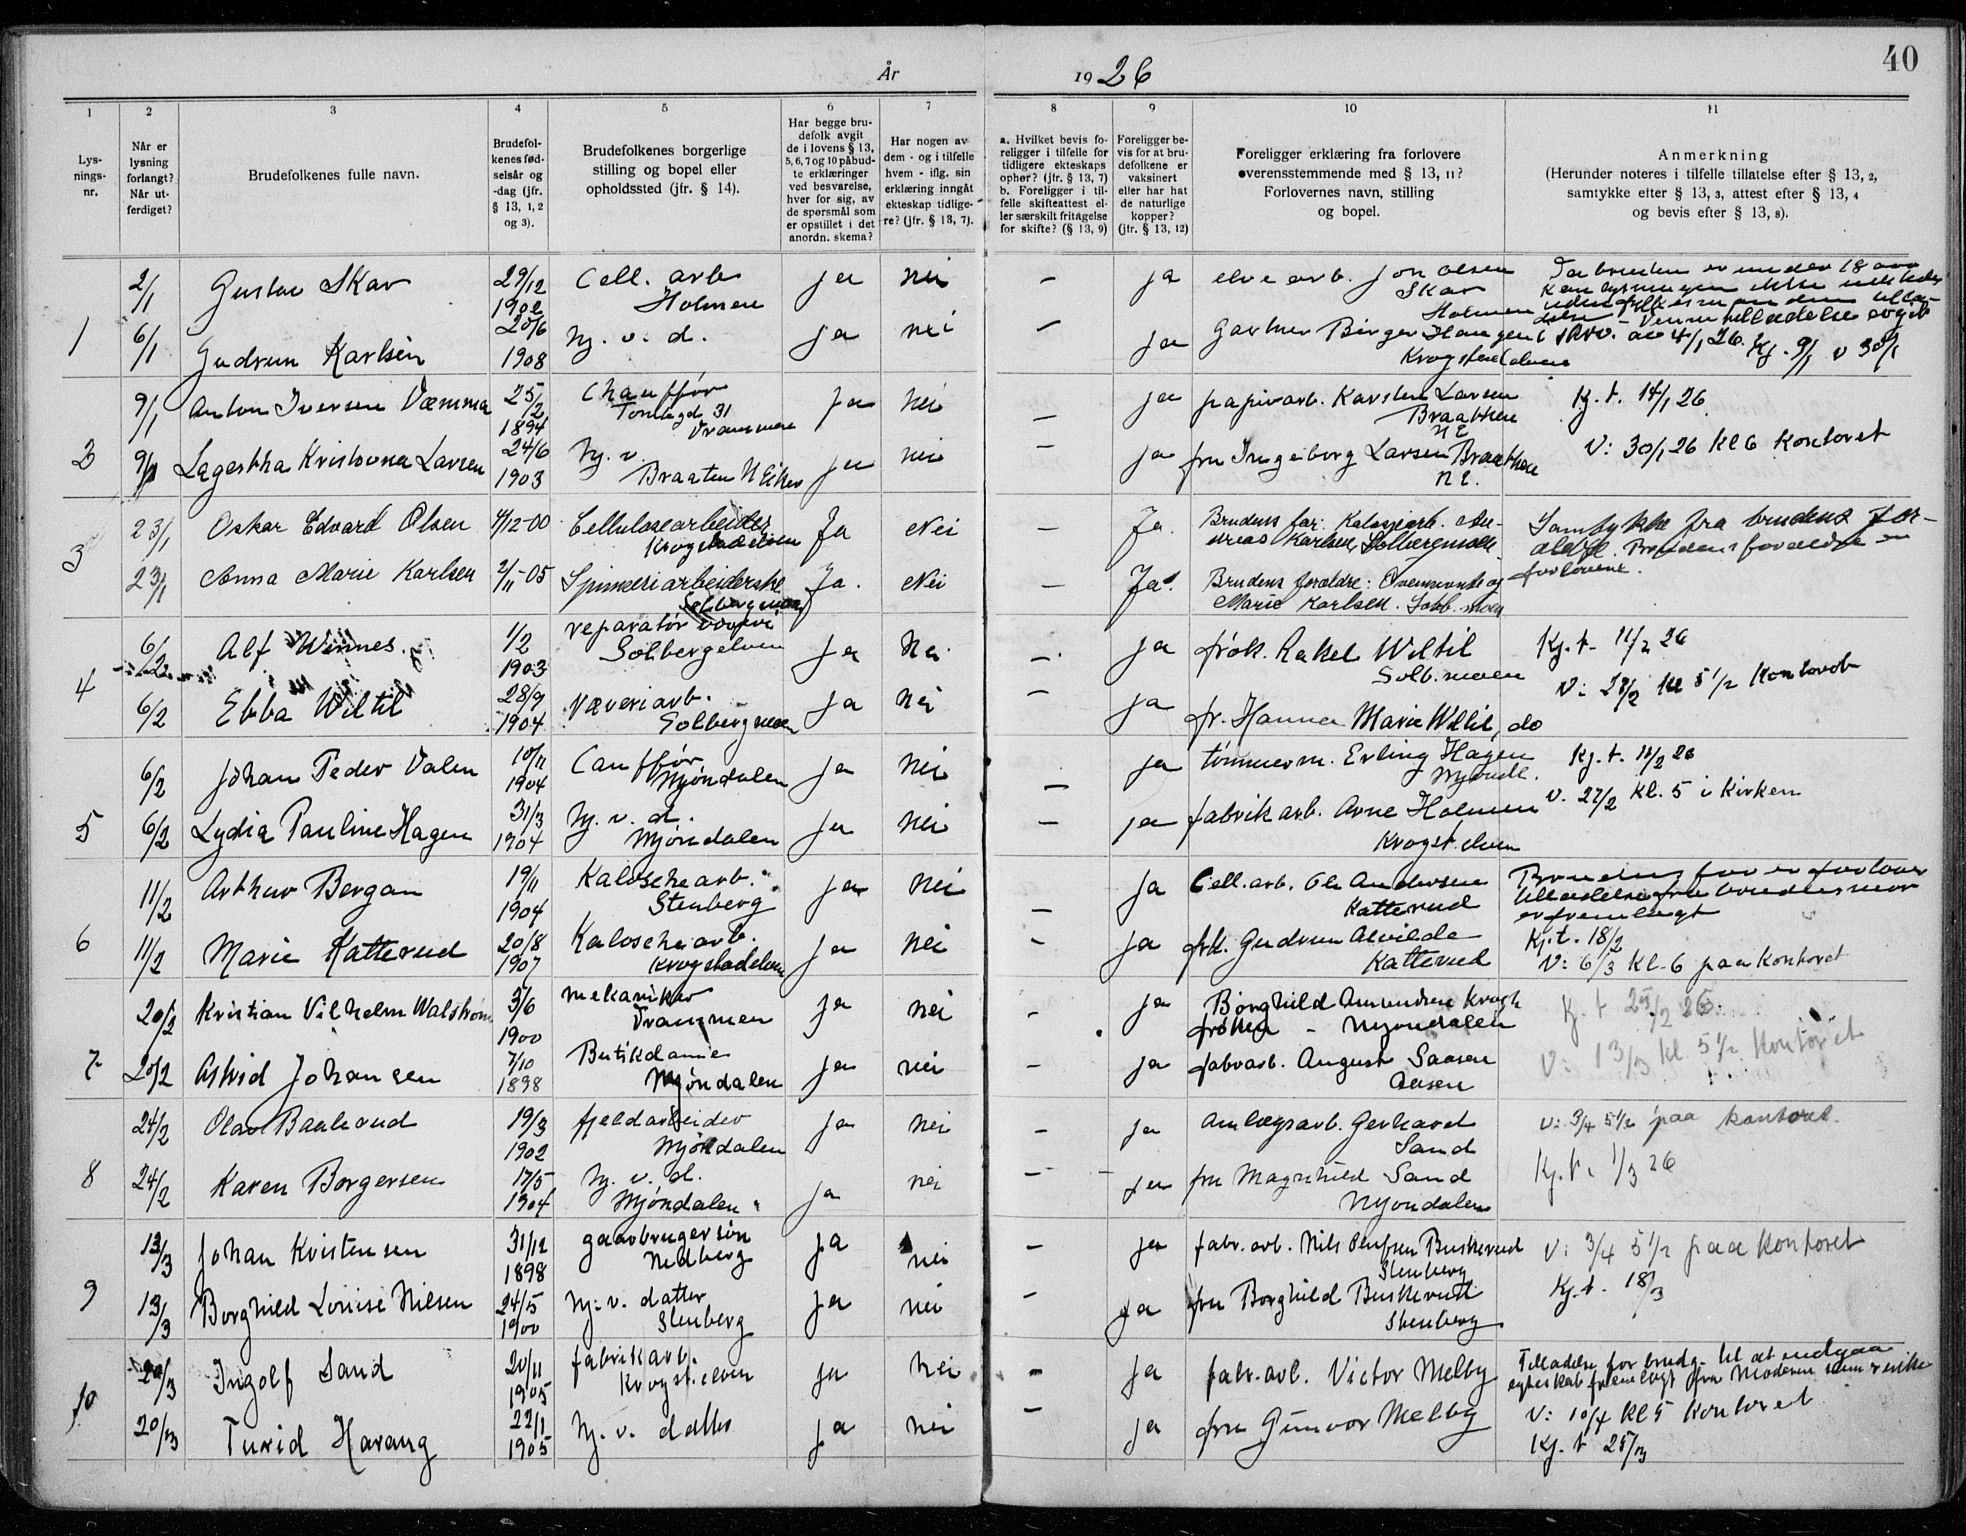 År 1926
40
1
2
3
4
5
6
7
8
9
10
11
Lys-
nings-
nr.
Når er
lysning
forlangt?
Når ut-
ferdiget?
Brudefolkenes fulle navn.
Brudefol-
kenes fød-
selsår og
-dag (jfr.
§ 13, 1, 2
og 3).
Brudefolkenes borgerlige
stilling og bopel eller
opholdssted (jfr. § 14).
Har begge bru-
defolk avgit
de i lovens § 13,
5, 6, 7 og 10 påbud-
te erklæringer
ved besvarelse,
hver for sig, av
de spørsmål som
er opstillet i det
anordn. skema?
Har nogen av
dem - og i tilfelle
hvem - iflg. sin
erklæring inngåt
ekteskap tidlige-
re? (jfr. § 13, 7).
a. Hvilket bevis fo-
religger i tilfelle for
tidligere ekteskaps
ophør? (jfr. § 13, 7)
b. Foreligger i til-
felle skifteattest el-
ler særskilt fritagelse
for skifte? (§ 13, 9)
Foreligger be-
vis for at bru-
defolkene er
vaksinert
eller har hat
de naturlige
kopper?
(jfr. § 13, 12)
Foreligger erklæring fra forlovere
overensstemmende med § 13, 11?
Forlovernes navn, stilling
og bopel.
Anmerkning
(Herunder noteres i tilfelle tillatelse efter § 13, 2,
samtykke efter § 13, 3, attest efter § 13, 4
og bevis efter § 13, 8).
1
2/1 Gustav Skar 29/12 1902 Cell. arb Holmen ja nei — ja elvearb. Jon Olsen Skar Holmen
6/1 Gudrun Karlsen 20/6 1908 Hj. v. d. ja nei — ja Gartner Birger Haugen Krogstadelven
Da bruden er under 18 aar
kan lysningen ikke
av 4/1 26. Kj. 9/1 V 30/1
2
9/1 Anton Iversen Væmma 25/2 1894 Chauffør Drammen ja nei — ja papirarb. Karsten Larsen Braathen N E Kj. t. 14/1 26
9/1 Lagertha Kristovna Larsen 24/6 1903 Hj. v. Braaten N Eiker ja nei — ja fru Ingeborg Larsen Braathen N E. V: 30/1 26 Kl 6 Kontoret
3
23/1 Oskar Edvard Olsen 4/12-00 Cellulosearbeider Krogstadelven Ja Nei — Ja. Brudens far: Kalosjearb. An-
dreas Karlsen, Solbergmoen
23/1 Anna Marie Karlsen 2/11-05 Spinneriarbeiderske Solbergmoen Ja. Nei — Ja. Brudens forældre: Ovennevnte og
Marie Karlsen. Solb.moen
Samtykke fra brudens for-
ældre. Brudens forældre er
forlovere.
4
6/2 Alf Winnes. 1/2 1903 reparatør Solbergelven ja Nei — ja frøk. Rakel Wiltil Solb.moen Kj. t. 11/2 26
6/2 Ebba Wiltil 28/9 1904 Væveriarb. Solbergmoen ja nei — ja fr. Hanna Marie Wiltil, do V: 27/2 Kl 5 1/2 Kontoret
5
6/2 Johan Peder Valen 10/11 1904 Cauffør Mjøndalen ja nei — ja tømmerm. Erling Hagen Mjøndl. Kj. t. 11/2 26
6/2 Lydia Pauline Hagen 31/3 1904 Hj. v. d. Mjøndalen ja nei — ja fabrikarb. Arne Holmen Krogst.elven v. 27/2 Kl. 5 i Kirken
6
11/2 Arthur Bergan 19/11 1904 Kaloschearb. Stenberg ja nei — ja Cell.arb. Ole Andersen Katterud
11/2 Marie Katterud 20/8 1907 Kaloschearb. Krogstadelven ja nei — ja frk. Gudrun Alvilde Katterud
Brudens far er forlover
tilladelse fra brudens mor
er fremlagt
Kj. t. 18/2
V: 6/3 Kl. 6 paa Kontoret
7
20/2 Kristian Vilhelm Walstrøm 3/6 1900 mekaniker Drammen ja nei — ja Borghild Amundsen Krogh frøken - Mjøndalen Kj. t 25/2 26.
20/2 Astrid Johansen 7/10 1898 Butikdame Mjøndalen ja nei — ja fabrarb. August Saasen Aasen V: 13/3 Kl 5 1/2 Kontoret
8
24/2 Olav Baalerud 19/3 1902 fjeldarbeider Mjøndalen ja nei — ja Anlægsarb. Gerhard Sand V: 3/4 5 1/2 paa kontoret.
24/2 Karen Borgersen 17/5 1904 Hj. v. d. Mjøndalen ja nei — ja fru Magnhild Sand Mjøndalen Kj. t. 1/3 26
9
13/3 Johan Kristensen 31/12 1898 gaarbrugersøn Nedberg ja nei — ja fabr. arb. Nils Buskerud Stenberg V: 3/4 5 1/2 paa Kontoret
13/3 Borghild Lovise Nilsen 24/5 1900 Hj. v. datter Stenberg ja nei — ja fru Borghild Buskerud Stenberg Kj. t. 18/3
10
20/3 Ingolf Sand 20/11 1905 fabrikarb. Krogst.elven ja nei — ja fabr.arb. Victor Melby
20/3 Turid Haraug 22/1 1905 Hj. v. datter ja nei — ja fru Gunvor Melby
Tilladelse for brudg. til at indgaa
egteskab fremlagt fra Moderen som enke
V: 10/4 Kl 5 Kontoret
Kj. t 25/3